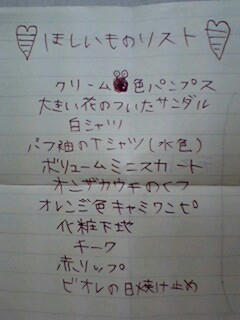 ほしいものリスト
クリーム色パンプス
大きい花のついたサンダル
白シャツ
パフ袖のTシャツ(水色)
ボリュームミニスカート
オンザカウチのくつ
オレンジ色キャミワンピ
化粧下地
チーク
赤リップ
ビオレの日焼け止め